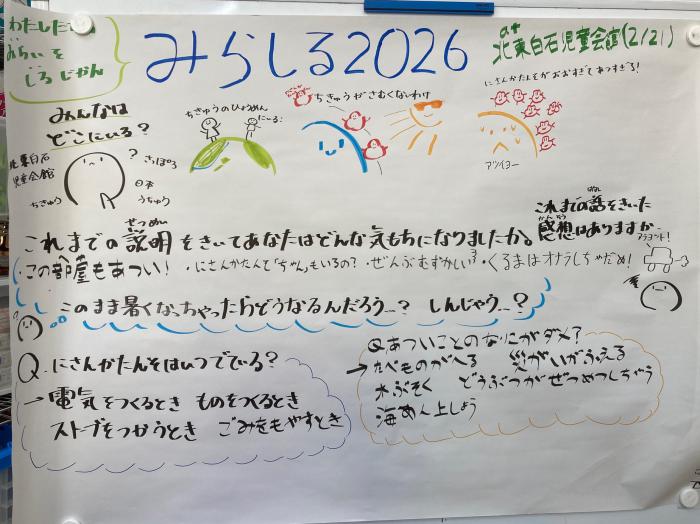 わたしたちの
みらいを
しるじかん
みらしる2026
きた
北東白石児童会館(2/21)
みんなは
どこにいる?
北東白石
児童会館
ちきゅう
?
さっぽろ
日本
うちゅう
ちきゅうのひょうめん
にーる:
ちきゅうがさむくないわけ
にさんかたんそがおおすぎてあつすぎる!
アツイヨー
せつめい
これまでの説明をきいてあなたはどんな気もちになりましたか。
はなし
これまでの話をきいた
かんそう
感想はありますか
・この部屋もあつい!・にさんかたんて「ちゃん」もいるの?・ぜんぶむずかしい・くるまはオナラしちゃだめ!
このまま暑くなっちゃったらどうなるんだろう…? しんじゃう…?
Q.にさんかたんそはいつでている?
→電気をつくるとき ものをつくるとき
ストーブをつかうとき ごみをもやすとき
Q.あついことのなにがダメ?
→たべものがへる 災がいがふえる
水ぶそく どうぶつがぜつめつしちゃう
海めん上しょう